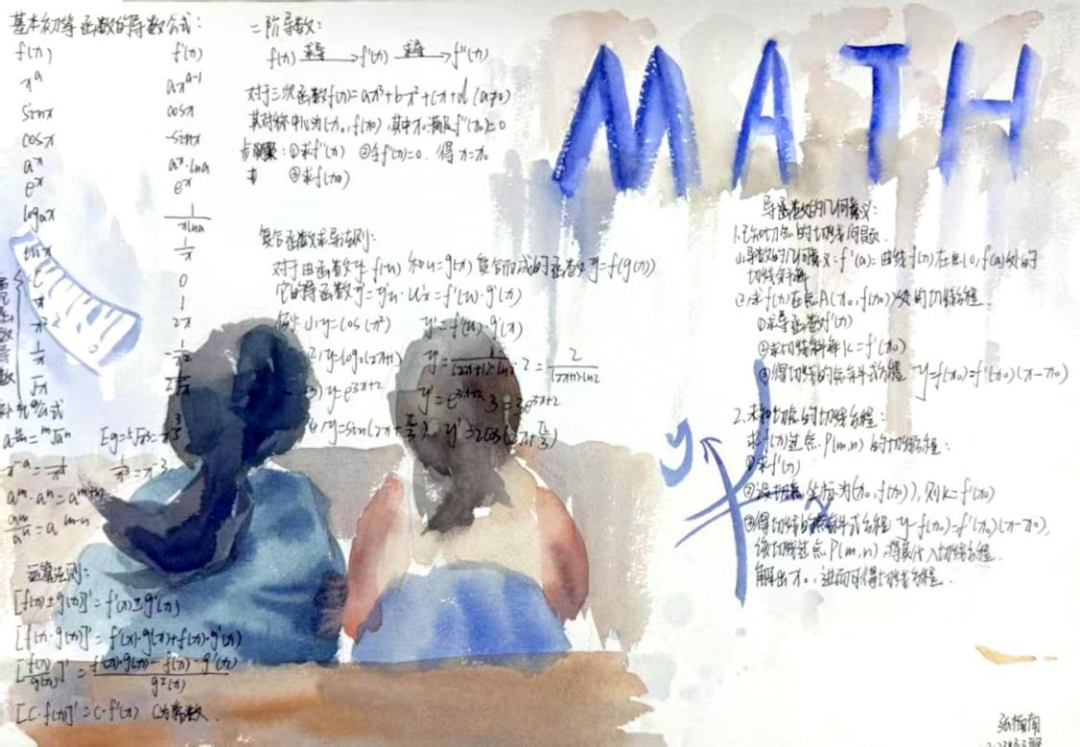 MATH
基本初等函数的导数公式：
f(x) f'(x)
x^a ax^(a-1)
sinx cosx
cosx -sinx
a^x a^x·lna
e^x e^x
logax 1/(xlna)
lnx 1/x
C 0
x 1
x² 2x
1/x -1/x²
√x
补充公式
x^-a = 1/x^a
a^m·a^n=a^(m+n)
a^m/a^n = a^(m-n)
运算法则：
[f(x)±g(x)]'=f'(x)±g'(x)
[f(x)·g(x)]'=f'(x)·g(x)+f(x)·g'(x)
[f(x)/g(x)]'=(f'(x)·g(x)-f(x)·g'(x))/g²(x)
[C·f(x)]'=C·f'(x) C为常数.
二阶导数：
f(x) 求导→f'(x) 求导→f''(x)
对于三次函数f(x)=ax³+bx²+cx+d (a≠0)
其对称中心为(x₀,f(x₀)),其中x₀满足f''(x₀)=0
步骤：①求f''(x) ②令f''(x)=0. 得x=x₀
③求f(x₀)
复合函数求导法则：
对于由函数y=f(u)和u=g(x)复合而成的函数y=f(g(x))
它的导函数y'=y'u·u'x=f'(u)·g'(x)
例：(1)y=cos(x²) y'=f'(u)·g'(x)
(2)y=log₂(2x+1) y'=1/((2x+1)·ln2)·2=2/((2x+1)ln2)
(3)y=e^(3x+2) y'=e^(3x+2)·3=3e^(3x+2)
(4)y=sin(2x+π/3) y'=2cos(2x+π/3)
导函数的几何意义：
1.已知切点的切线问题.
(1)导数的几何意义：f'(a)=曲线f(x)在点(a,f(a))处的
切线斜率
(2)求f(x)在点A(x₀,f(x₀))处的切线方程.
①求导函数f'(x)
②求切线斜率k=f'(x₀)
③得切线的点斜式方程 y-f(x₀)=f'(x₀)(x-x₀)
2.未知切点的切线方程：
求f(x)过点P(m,n)的切线方程：
①求f'(x)
②设切点坐标为(x₀,f(x₀)),则k=f'(x₀)
③得切线的点斜式方程 y-f(x₀)=f'(x₀)(x-x₀),
该切线过点P(m,n).将其代入切线方程.
解出x₀.进而可得切线方程.
y
x